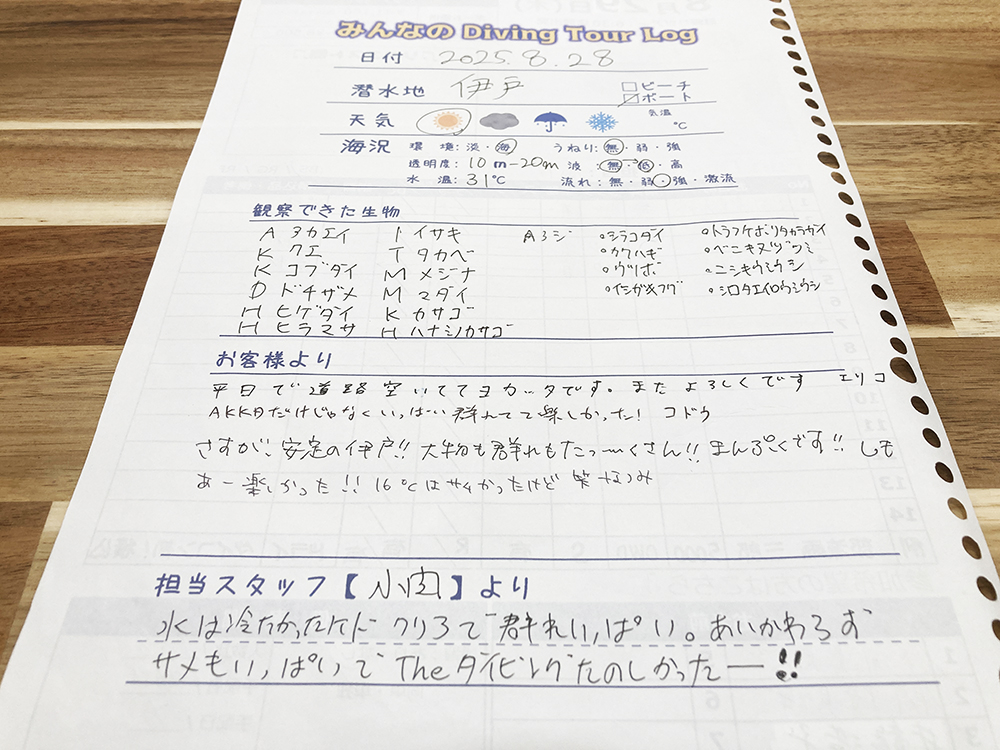 みんなの Diving Tour Log
日付 2025.8.28
潜水地 伊戸 □ビーチ
☑ボート
天気 気温 ℃
海況 環境:淡・海 うねり:無・弱・強
透明度:10m-20m 波:無・低・高
水温:31℃ 流れ:無・弱・強・激流
観察できた生物
A アカエイ I イサキ A アジ ◦シラコダイ ◦トラフケボリタカラガイ
K クエ T タカベ ◦カワハギ ◦ベニキヌヅツミ
K コブダイ M メジナ ◦ウツボ ◦ニシキウミウシ
D ドチザメ M マダイ ◦イシガキフグ ◦シロタエイロウミウシ
H ヒゲダイ K カサゴ
H ヒラマサ H ハナミノカサゴ
お客様より
平日で道路空いててヨカッタです。またよろしくです エリコ
AKKBだけじゃなくいっぱい群れてて楽しかった! コドウ
さすが、安定の伊戸!! 大物も群れもたっーくさん!! まんぷくです!! しも
あー楽しかった!! 16℃はサムかったけど笑 なつみ
担当スタッフ【小肉】より
水は冷たかったケド クリアで群れいっぱい。あいかわらず
サメもいっぱいで The ダイビングたのしかったー!!